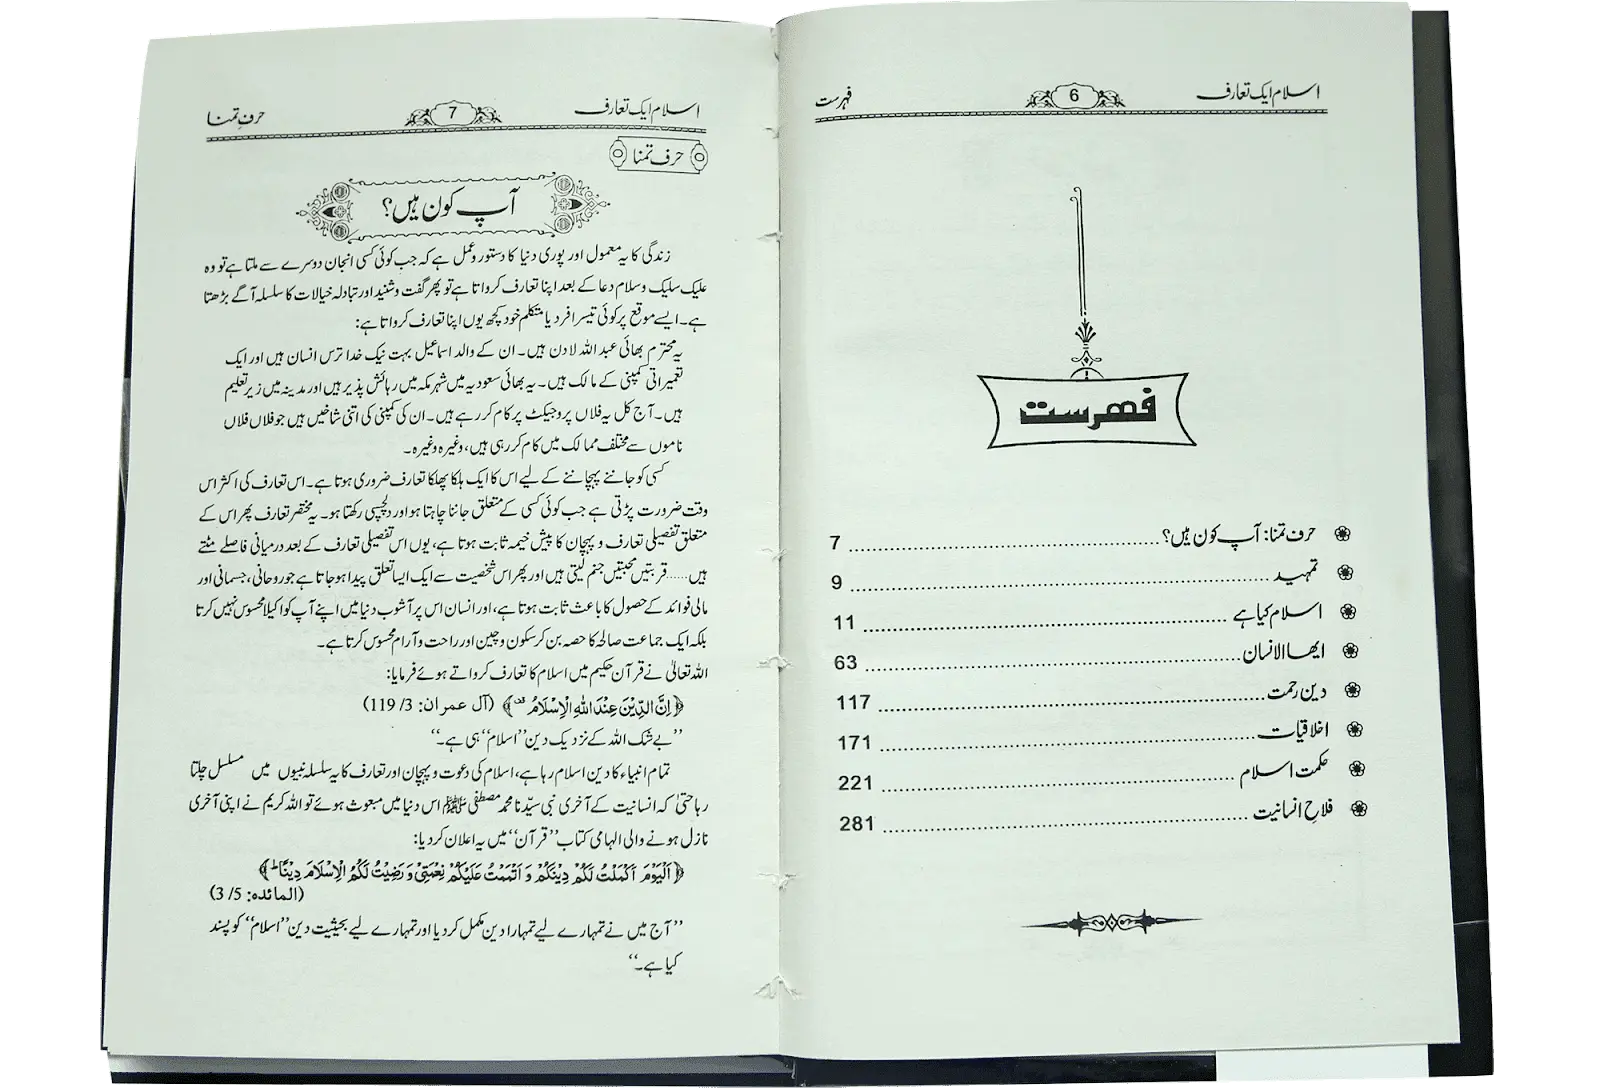 اسلام ایک تعارف 6 فہرست
فہرست
حرف تمنا: آپ کون ہیں؟ 7
تمہید 9
اسلام کیا ہے 11
ایھا الانسان 63
دین رحمت 117
اخلاقیات 171
حکمت اسلام 221
فلاحِ انسانیت 281
اسلام ایک تعارف 7 حرفِ تمنا
حرف تمنا
آپ کون ہیں؟
زندگی کا یہ معمول اور پوری دنیا کا دستور وعمل ہے کہ جب کوئی کسی انجان دوسرے سے ملتا ہے تو وہ
علیک سلیک وسلام دعا کے بعد اپنا تعارف کرواتا ہے تو پھر گفت وشنید اور تبادلہ خیالات کا سلسلہ آگے بڑھتا
ہے۔ ایسے موقع پر کوئی تیسرا فرد یا متکلم خود کچھ یوں اپنا تعارف کرواتا ہے:
یہ محترم بھائی عبد اللہ لادن ہیں۔ ان کے والد اسماعیل بہت نیک خدا ترس انسان ہیں اور ایک
تعمیراتی کمپنی کے مالک ہیں۔ یہ بھائی سعودیہ میں شہر مکہ میں رہائش پذیر ہیں اور مدینہ میں زیر تعلیم
ہیں۔ آج کل یہ فلاں پروجیکٹ پر کام کر رہے ہیں۔ ان کی کمپنی کی اتنی شاخیں ہیں جو فلاں فلاں
ناموں سے مختلف ممالک میں کام کر رہی ہیں، وغیرہ وغیرہ۔
کسی کو جاننے پہچاننے کے لیے اس کا ایک ہلکا پھلکا تعارف ضروری ہوتا ہے۔ اس تعارف کی اکثر اس
وقت ضرورت پڑتی ہے جب کوئی کسی کے متعلق جاننا چاہتا ہو اور دلچسپی رکھتا ہو۔ یہ مختصر تعارف پھر اس کے
متعلق تفصیلی تعارف و پہچان کا پیش خیمہ ثابت ہوتا ہے، یوں اس تفصیلی تعارف کے بعد درمیانی فاصلے مٹتے
ہیں...... قربتیں محبتیں جنم لیتی ہیں اور پھر اس شخصیت سے ایک ایسا تعلق پیدا ہو جاتا ہے جو روحانی، جسمانی اور
مالی فوائد کے حصول کا باعث ثابت ہوتا ہے، اور انسان اس پر آشوب دنیا میں اپنے آپ کو اکیلا محسوس نہیں کرتا
بلکہ ایک جماعت صالحہ کا حصہ بن کر سکون وچین اور راحت وآرام محسوس کرتا ہے۔
اللہ تعالیٰ نے قرآن حکیم میں اسلام کا تعارف کرواتے ہوئے فرمایا:
﴿اِنَّ الدِّیْنَ عِنْدَ اللّٰہِ الْاِسْلَامُ ۟﴾ (آل عمران: 3/ 119)
’’بے شک اللہ کے نزدیک دین ’’اسلام‘‘ ہی ہے۔‘‘
تمام انبیاء کا دین اسلام رہا ہے، اسلام کی دعوت و پہچان اور تعارف کا یہ سلسلہ نبیوں میں مسلسل چلتا
رہا حتیٰ کہ انسانیت کے آخری نبی سیّدنا محمد مصطفی ﷺ اس دنیا میں مبعوث ہوئے تو اللہ کریم نے اپنی آخری
نازل ہونے والی الہامی کتاب ’’قرآن‘‘ میں یہ اعلان کر دیا:
﴿اَلْیَوْمَ اَکْمَلْتُ لَکُمْ دِیْنَکُمْ وَ اَتْمَمْتُ عَلَیْکُمْ نِعْمَتِیْ وَ رَضِیْتُ لَکُمُ الْاِسْلَامَ دِیْنًا ؕ﴾
(المائدہ: 5/ 3)
’’آج میں نے تمہارے لیے تمہارا دین مکمل کر دیا اور تمہارے لیے بحیثیت دین ’’اسلام‘‘ کو پسند
کیا ہے۔‘‘